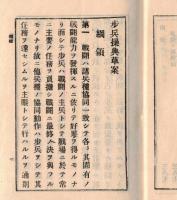 歩兵操典草案
綱領
第一 戰鬪ハ諸兵種協同一致シテ各〻其固有ノ
戰鬪能力ヲ發揮スルニ依リテ好果ヲ得ルモノナ
リ而シテ歩兵ハ戰鬪ノ主兵トシテ戰場ニ於テ常
ニ主要ノ任務ヲ負擔シ戰鬪ニ最終ノ決ヲ與フル
モノナリ故ニ他兵種ノ協同動作ハ歩兵ヲシテ其
任務ヲ達セシムルヲ主眼トシテ行ハルルヲ通則
綱領